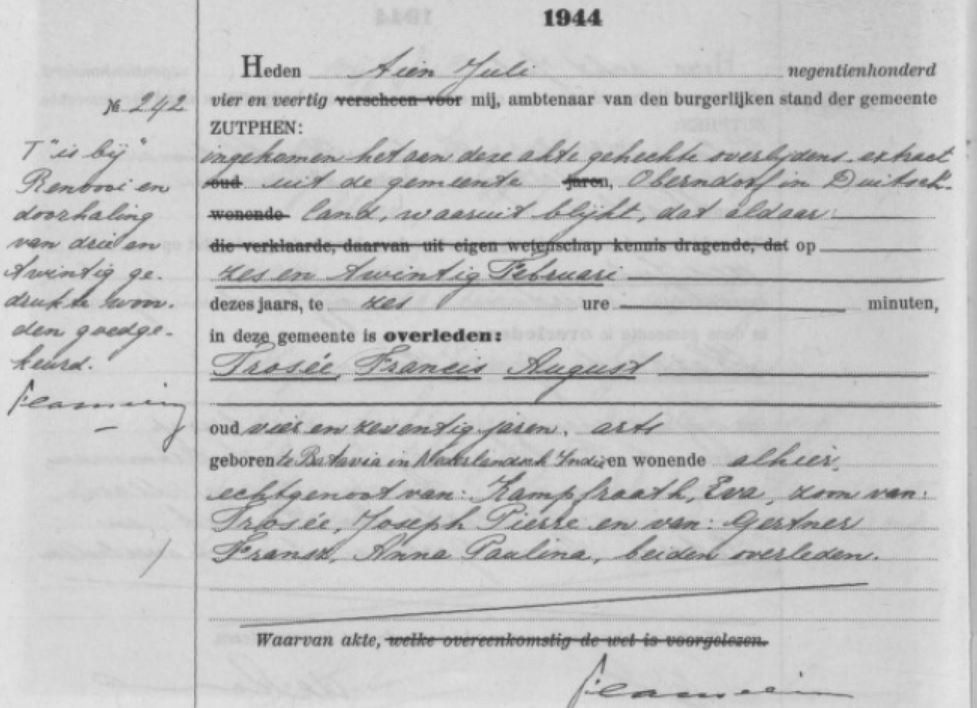 1944
Heden tien Juli negentienhonderd
№ 242
vier en veertig verscheen voor mij, ambtenaar van den burgerlijken stand der gemeente
ZUTPHEN:
T "is bij"
Renvooi en
doorhaling
van drie en
twintig ge-
drukte woor-
den goedge-
keurd.
ingekomen het aan deze akte gehechte overlijdens-extract
oud uit de gemeente jaren, Oberndorf in Duitsch-
wonende land, waaruit blijkt, dat aldaar:
die verklaarde, daarvan uit eigen wetenschap kennis dragende, dat op
zes en twintig Februari
dezes jaars, te zes ure minuten,
in deze gemeente is overleden:
Trosée, Francis August
oud vier en zeventig jaren, arts
geboren te Batavia in Nederlandsch Indië en wonende alhier,
echtgenoot van: Kampfraath, Eva, zoon van:
Trosée, Joseph Pierre en van: Gertner
Fransz, Anna Paulina, beiden overleden.
Waarvan akte, welke overeenkomstig de wet is voorgelezen.